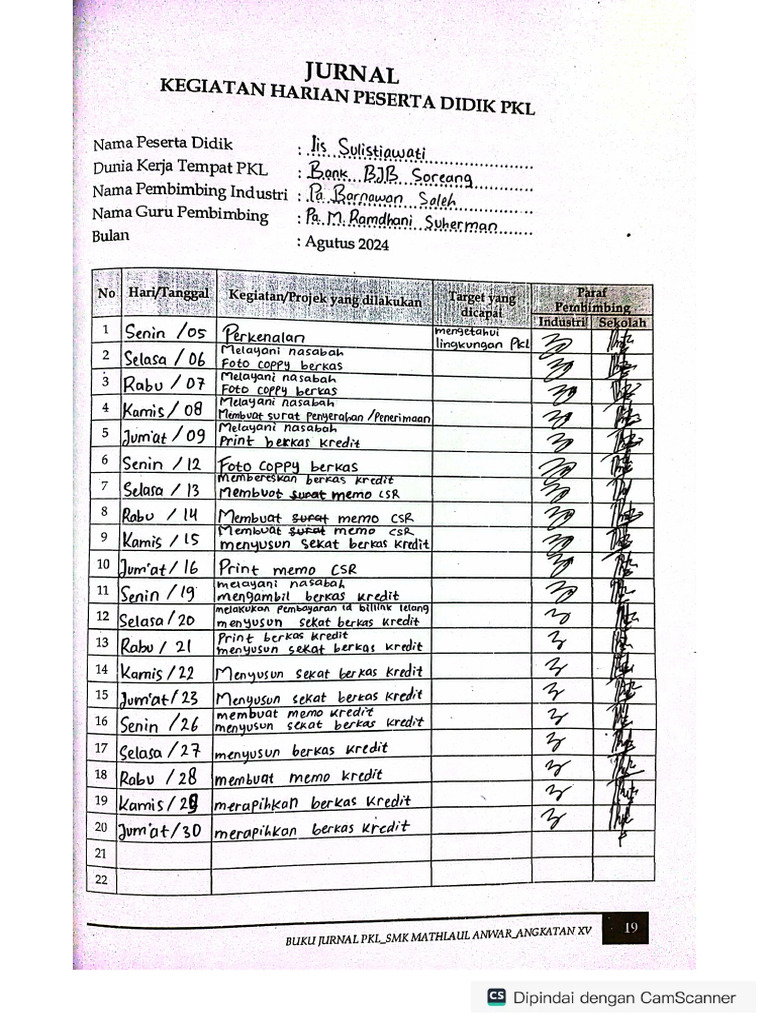 JURNAL
KEGIATAN HARIAN PESERTA DIDIK PKL
Nama Peserta Didik : Iis Sulistiawati
Dunia Kerja Tempat PKL : Bank BJB Soreang
Nama Pembimbing Industri : Pa Barnawan Saleh
Nama Guru Pembimbing : Pa. M. Ramdhani Suherman
Bulan : Agutus 2024
No Hari/Tanggal Kegiatan/Projek yang dilakukan Target yang dicapai Paraf Pembimbing
Industri Sekolah
1 Senin /05 Perkenalan mengetahui lingkungan Pkl
2 Selasa / 06 Melayani nasabah
Foto coppy berkas
3 Rabu / 07 Melayani nasabah
Foto coppy berkas
4 Kamis / 08 Melayani nasabah
Membuat surat penyerahan /Penerimaan
5 Jum'at / 09 Melayani nasabah
Print berkas kredit
6 Senin / 12 Foto coppy berkas
7 Selasa / 13 membereskan berkas kredit
Membuat surat memo CSR
8 Rabu / 14 Membuat surat memo CSR
9 Kamis / 15 Membuat surat memo CSR
menyusun sekat berkas kredit
10 Jum'at / 16 Print memo CSR
11 Senin / 19 melayani nasabah
mengambil berkas kredit
12 Selasa / 20 melakukan pembayaran id billink lelang
menyusun sekat berkas kredit
13 Rabu / 21 Print berkas kredit
menyusun sekat berkas kredit
14 Kamis / 22 Menyusun sekat berkas kredit
15 Jum'at / 23 Menyusun sekat berkas kredit
16 Senin / 26 membuat memo kredit
menyusun sekat berkas kredit
17 Selasa / 27 menyusun berkas kredit
18 Rabu / 28 membuat memo kredit
19 Kamis / 29 merapihkan berkas kredit
20 Jum'at / 30 merapihkan berkas kredit
21
22
BUKU JURNAL PKL_SMK MATHLAUL ANWAR_ANGKATAN XV 19
CS Dipindai dengan CamScanner